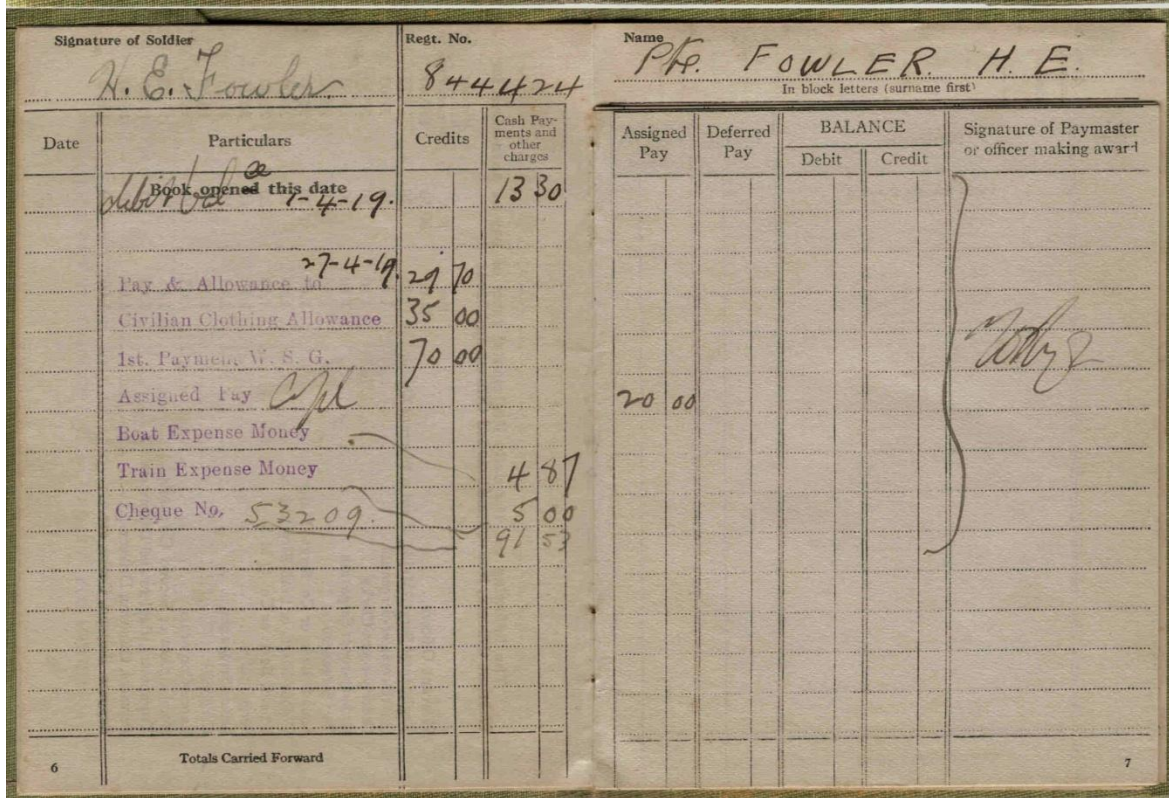 Signature of Soldier
H. E. Fowler
Regt. No.
844424
Date
Particulars
Credits
Cash Pay-
ments and
other
charges
debit balce
Book opened this date
1-4-19.
13 30
27-4-19.
Pay & Allowance to
29 70
Civilian Clothing Allowance
35 00
1st. Payment W. S. G.
70 00
Assigned Pay
Boat Expense Money
Train Expense Money
4 87
Cheque No. 53209.
5 00
91 53
Totals Carried Forward
6
Name
Pte. FOWLER. H. E.
In block letters (surname first)
Assigned
Pay
Deferred
Pay
BALANCE
Debit
Credit
Signature of Paymaster
or officer making award
20 00
7